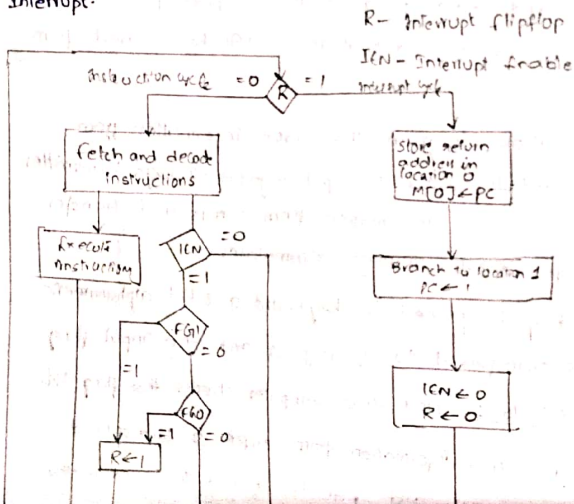 Interrupt.
R- Interrupt flipflop
IEN- Interrupt Enable
Instruction cycle =0 R =1 Interrupt cycle
Fetch and decode
instructions
Store return
address in
location 0
M[0]←PC
Execute
instruction
IEN =0
=1
Branch to location 1
PC ← 1
FGI
=0
=1
IEN ← 0
R ← 0
FGO
=1 =0
R←1